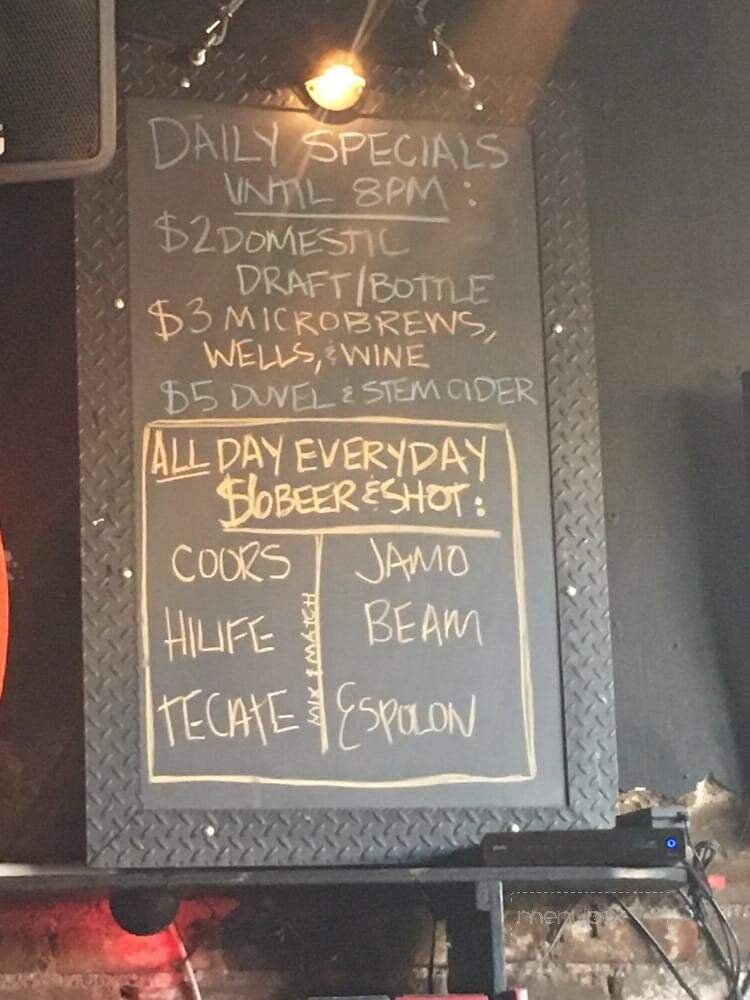 DAILY SPECIALS
UNTIL 8PM:
$2 DOMESTIC
DRAFT/BOTTLE
$3 MICROBREWS,
WELLS, & WINE
$5 DUVEL & STEM CIDER
ALL DAY EVERYDAY
$6 BEER & SHOT:
COORS JAMO
HILIFE BEAM
TECATE ESPOLON
MIX & MATCH
menupix